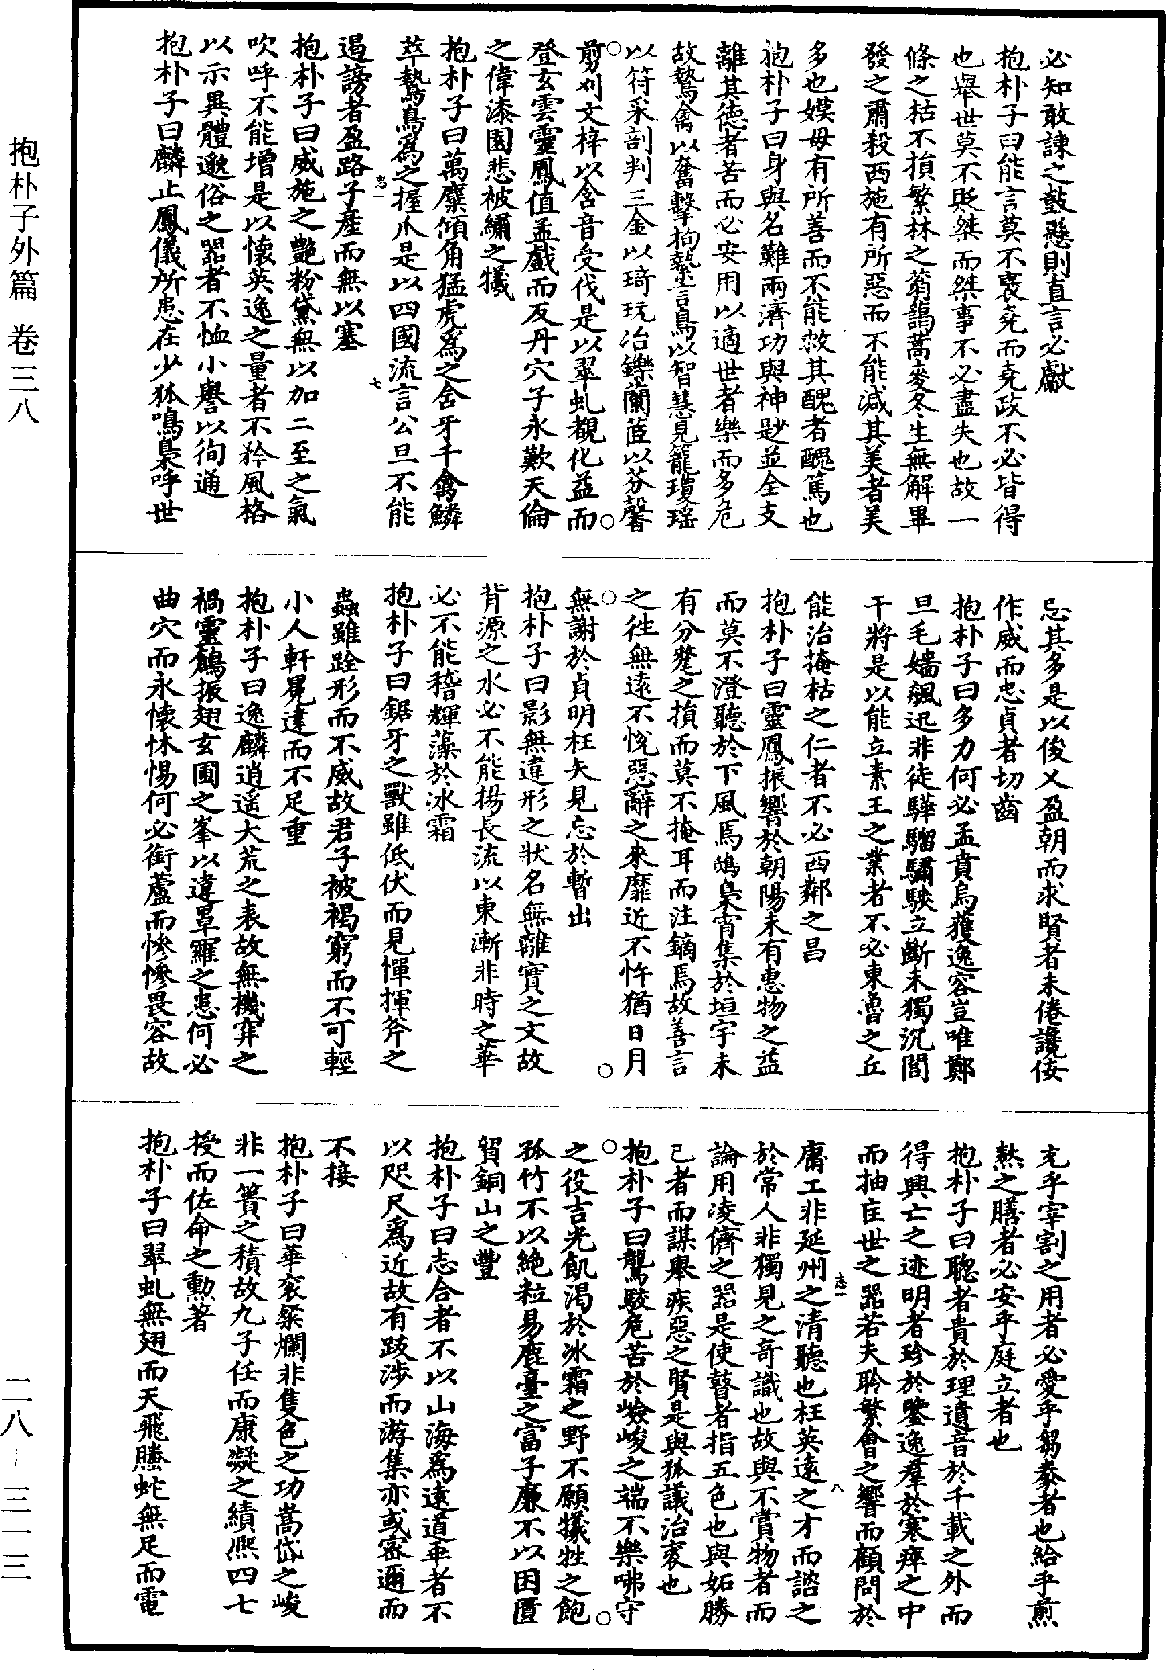 必知敢諫之鼓懸則直言必獻
抱朴子曰能言莫不裒堯而堯政不必皆得
也舉世莫不貶桀而桀事不必盡失也故一
條之枯不損繁林之蓊藹蒿麥冬生無解畢
發之肅殺西施有所惡而不能減其美者美
多也嫫母有所善而不能救其醜者醜篤也
抱朴子曰身與名難兩濟功與神尟並全支
離其德者苦而必安用以適世者樂而多危
故鷙禽以奮擊拘縶言鳥以智慧見籠瓊瑶
以符采剖判三金以琦玩冶鑠蘭茝以芬馨
剪刈文梓以含音受伐是以翠虬覩化益而
登玄雲靈鳳值孟戲而反丹穴子永歎天倫
之偉漆園悲被繡之犧
抱朴子曰萬麋傾角猛虎爲之含牙千禽鱗
萃鷙鳥爲之握爪是以四國流言公旦不能
遏謗者盈路子產而無以塞
抱朴子曰威施之艷粉黛無以加二至之氣
吹呼不能增是以懷英逸之量者不矜風格
以示異體邈俗之器者不恤小譽以徇通
抱朴子曰麟止鳳儀所患在少狐鳴梟呼世
忌其多是以俊乂盈朝而求賢者未倦讒佞
作威而忠貞者切齒
抱朴子曰多力何必孟賁烏獲逸容豈唯鄭
旦毛嬙飆迅非徒驊騮驌駷立斷未獨沉閭
干將是以能立素王之業者不必東魯之丘
能洽掩枯之仁者不必西鄰之昌
抱朴子曰靈鳳振響於朝陽未有惠物之益
而莫不澄聽於下風焉鴟梟宵集於垣宇未
有分釐之損而莫不掩耳而注鏑焉故善言
之往無遠不悅惡辭之來靡近不忤猶日月
無謝於貞明枉矢見忘於暫出
抱朴子曰影無違形之狀名無離實之文故
背源之水必不能揚長流以東漸非時之華
必不能稽輝藻於冰霜
抱朴子曰鋸牙之獸雖低伏而見憚揮斧之
蟲雖跧形而不威故君子被褐窮而不可輕
小人軒冕達而不足重
抱朴子曰逸麟逍遥大荒之表故無機穽之
禍靈鶴振翅玄圃之峯以違罩羅之患何必
曲穴而永懷怵惕何必銜蘆而慘慘畏容故
充乎宰割之用者必愛乎芻豢者也給乎煎
熬之膳者必安乎庭立者也
抱朴子曰聰者貴於理遺音於千載之外而
得興亡之迹明者珍於鑒逸羣於寒瘁之中
而抽匡世之器若夫聆繁會之響而顧問於
庸工非延州之清聽也枉英遠之才而諮之
於常人非獨見之奇識也故與不賞物者而
論用淩儕之器是使瞽者指五色也與妬勝
己者而謀舉疾惡之賢是與狐議治裘也
抱朴子曰鸑駿危苦於嶮峻之端不樂咈守
之役吉光飢渴於冰霜之野不願犧牲之飽
孤竹不以絶粒易鹿臺之富子廉不以困匱
貿銅山之豐
抱朴子曰志合者不以山海爲遠道乖者不
以咫尺爲近故有跋涉而游集亦或密邇而
不接
抱朴子曰華衮粲爛非隻色之功嵩岱之峻
非一簣之積故九子任而康凝之績熙四七
授而佐命之勳著
抱朴子曰翠虬無翅而天飛螣蛇無足而電
志一
七
志一
八
抱朴子外篇 卷三八
二八—三一三